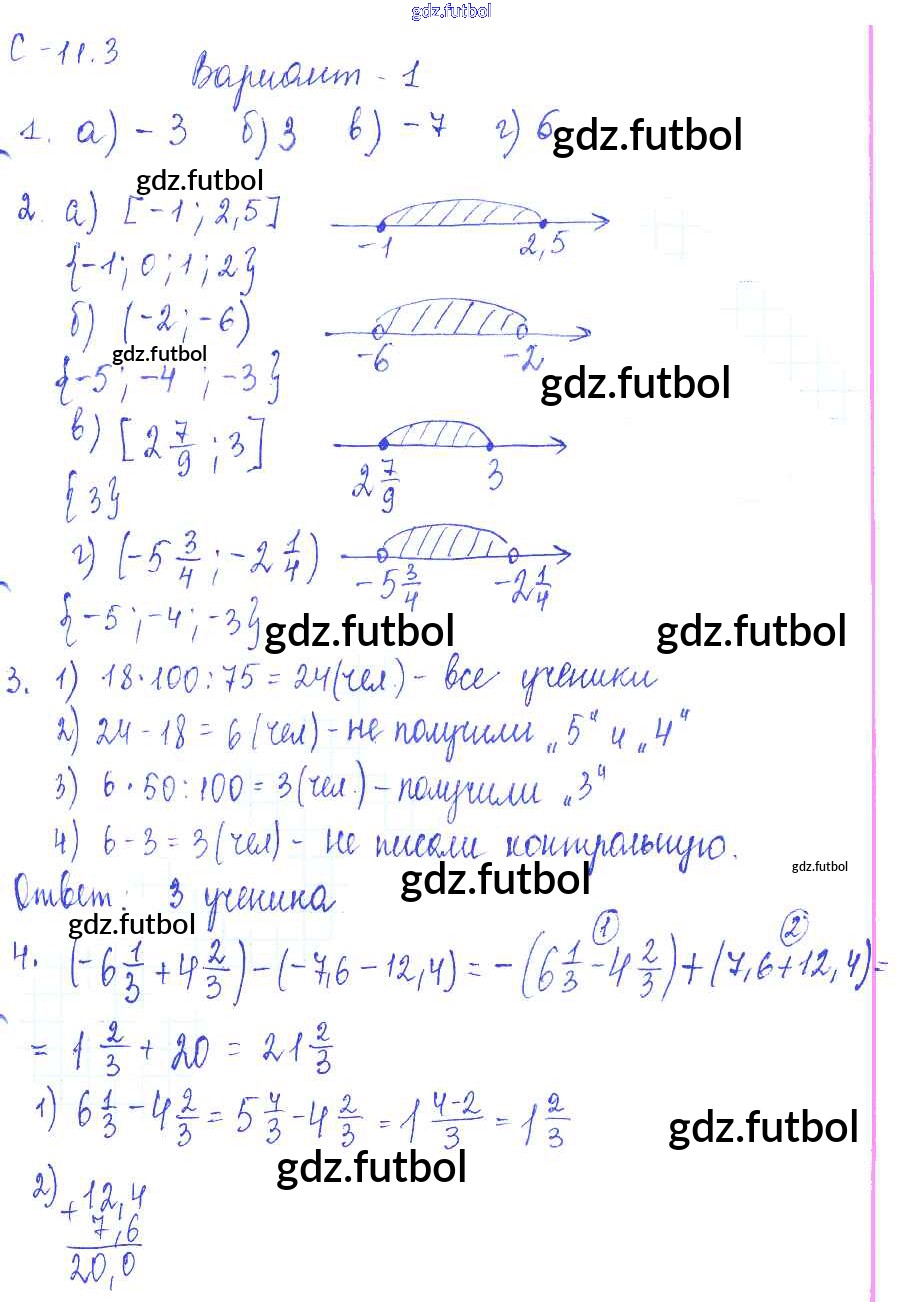 gdz.futbol
С-11.3
Вариант-1
1. а) -3 б) 3 в) -7 г) 6 gdz.futbol
gdz.futbol
2. а) [-1; 2,5] -1 2,5
{-1; 0; 1; 2}
б) (-2; -6) -6 -2
gdz.futbol
{-5; -4; -3} gdz.futbol
в) [2 7/9; 3] 2 7/9 3
{3}
г) (-5 3/4; -2 1/4) -5 3/4 -2 1/4
{-5; -4; -3} gdz.futbol gdz.futbol
3. 1) 18·100:75=24(чел.) - все ученики
2) 24-18=6(чел) - не получили „5“ и „4“
3) 6·50:100=3(чел.) - получили „3“
4) 6-3=3(чел) - не писали контрольную.
gdz.futbol gdz.futbol
Ответ: 3 ученика
gdz.futbol
1 2
4. (-6 1/3 + 4 2/3) - (-7,6 - 12,4) = -(6 1/3 - 4 2/3) + (7,6 + 12,4) =
= 1 2/3 + 20 = 21 2/3
1) 6 1/3 - 4 2/3 = 5 4/3 - 4 2/3 = 1 4-2/3 = 1 2/3 gdz.futbol
gdz.futbol
2) + 12,4
7,6
20,0